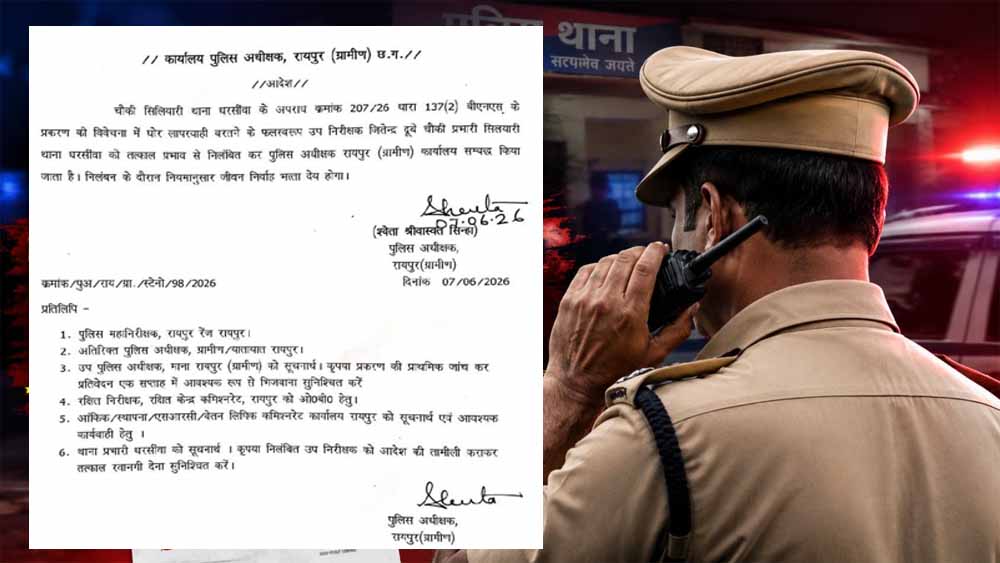 // कार्यालय पुलिस अधीक्षक, रायपुर (ग्रामीण) छ.ग.//
//आदेश//
चौकी सिलियारी थाना धरसींवा के अपराध क्रमांक 207/26 धारा 137(2) बीएनएस् के
प्रकरण की विवेचना में घोर लापरवाही बरतने के फलस्वरूप उप निरीक्षक जितेन्द्र दूबे चौकी प्रभारी सिलयारी
थाना धरसींवा को तत्काल प्रभाव से निलंबित कर पुलिस अधीक्षक रायपुर (ग्रामीण) कार्यालय सम्बद्ध किया
जाता है। निलंबन के दौरान नियमानुसार जीवन निर्वाह भत्ता देय होगा।
Shweta
07.06.26
(श्वेता श्रीवास्तव सिन्हा)
पुलिस अधीक्षक,
रायपुर(ग्रामीण)
क्रमांक/पुअ/राय/ग्रा./स्टेनो/98/2026
दिनांक 07/06/2026
प्रतिलिपि –
1. पुलिस महानिरीक्षक, रायपुर रेंज रायपुर।
2. अतिरिक्त पुलिस अधीक्षक, ग्रामीण/यातायात रायपुर।
3. उप पुलिस अधीक्षक, माना रायपुर (ग्रामीण) को सूचनार्थ। कृपया प्रकरण की प्राथमिक जांच कर
प्रतिवेदन एक सप्ताह में आवश्यक रूप से भिजवाना सुनिश्चित करें
4. रक्षित निरीक्षक, रक्षित केन्द्र कमिश्नरेट, रायपुर को ओ0बी0 हेतु।
5. ऑफिक/स्थापना/एसआरसी/वेतन लिपिक कमिश्नरेट कार्यालय रायपुर को सूचनार्थ एवं आवश्यक
कार्यवाही हेतु ।
6. थाना प्रभारी धरसींवा को सूचनार्थ । कृपया निलंबित उप निरीक्षक को आदेश की तामीली कराकर
तत्काल रवानगी देना सुनिश्चित करें।
Shweta
पुलिस अधीक्षक,
रायपुर(ग्रामीण)
पुलिस थाना
सत्यमेव जयते